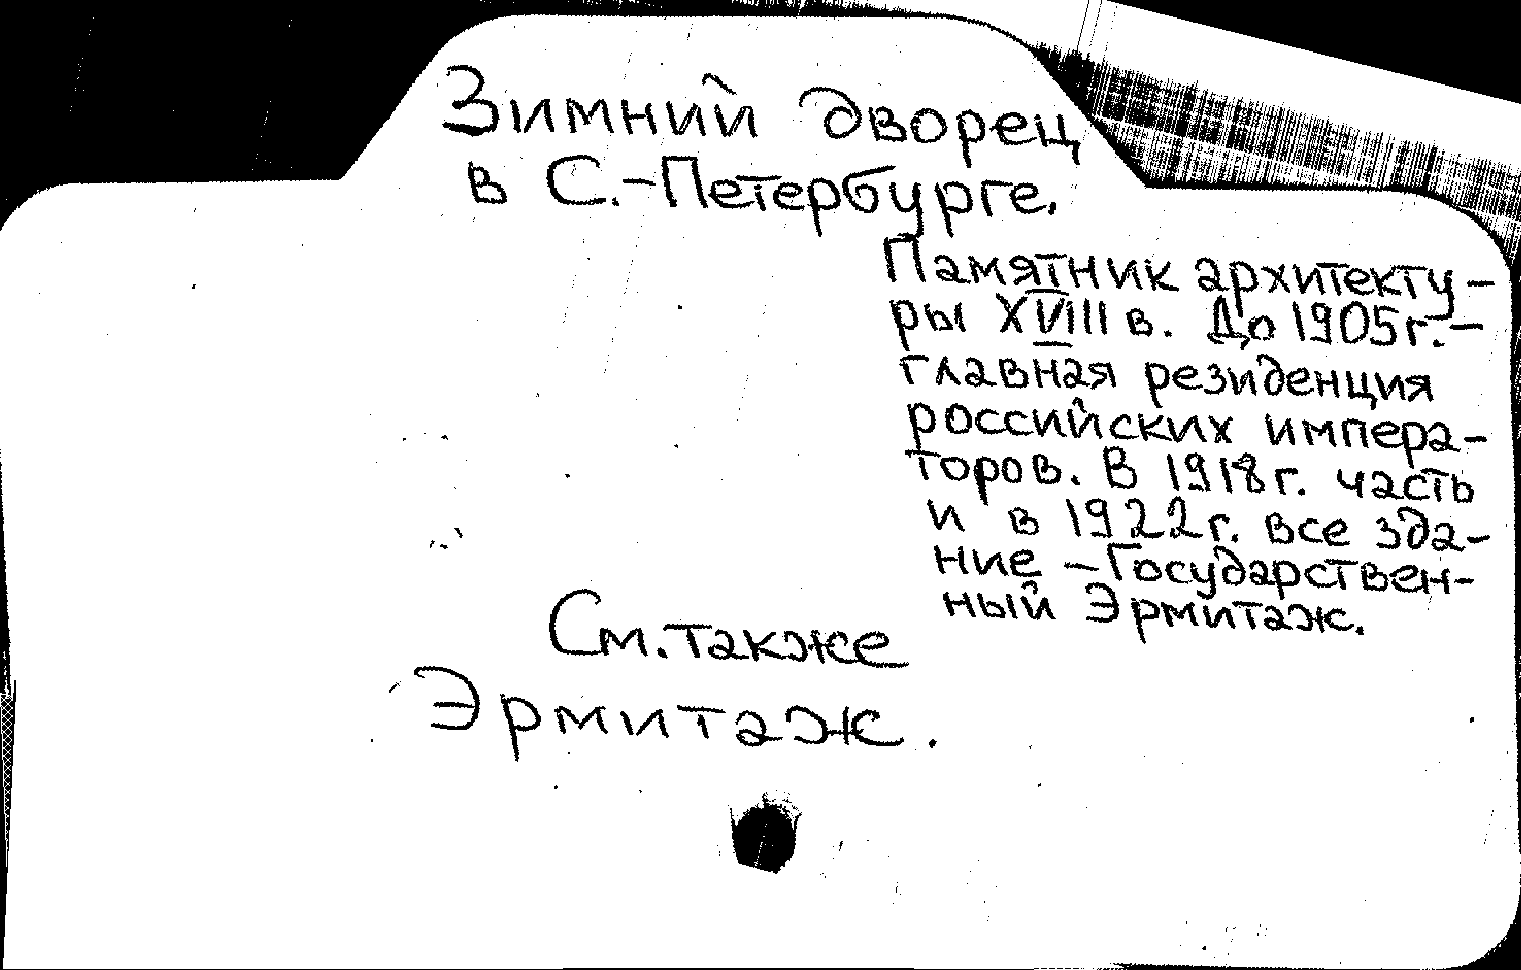 Зимний дворец
в С.-Петербурге.
Памятник архитекту-
ры XVIII в. До 1905г.-
главная резиденция
российских импера-
торов. В 1918г. часть
и в 1922г. все зда-
ние - Государствен-
ный Эрмитаж.
См. также
Эрмитаж.